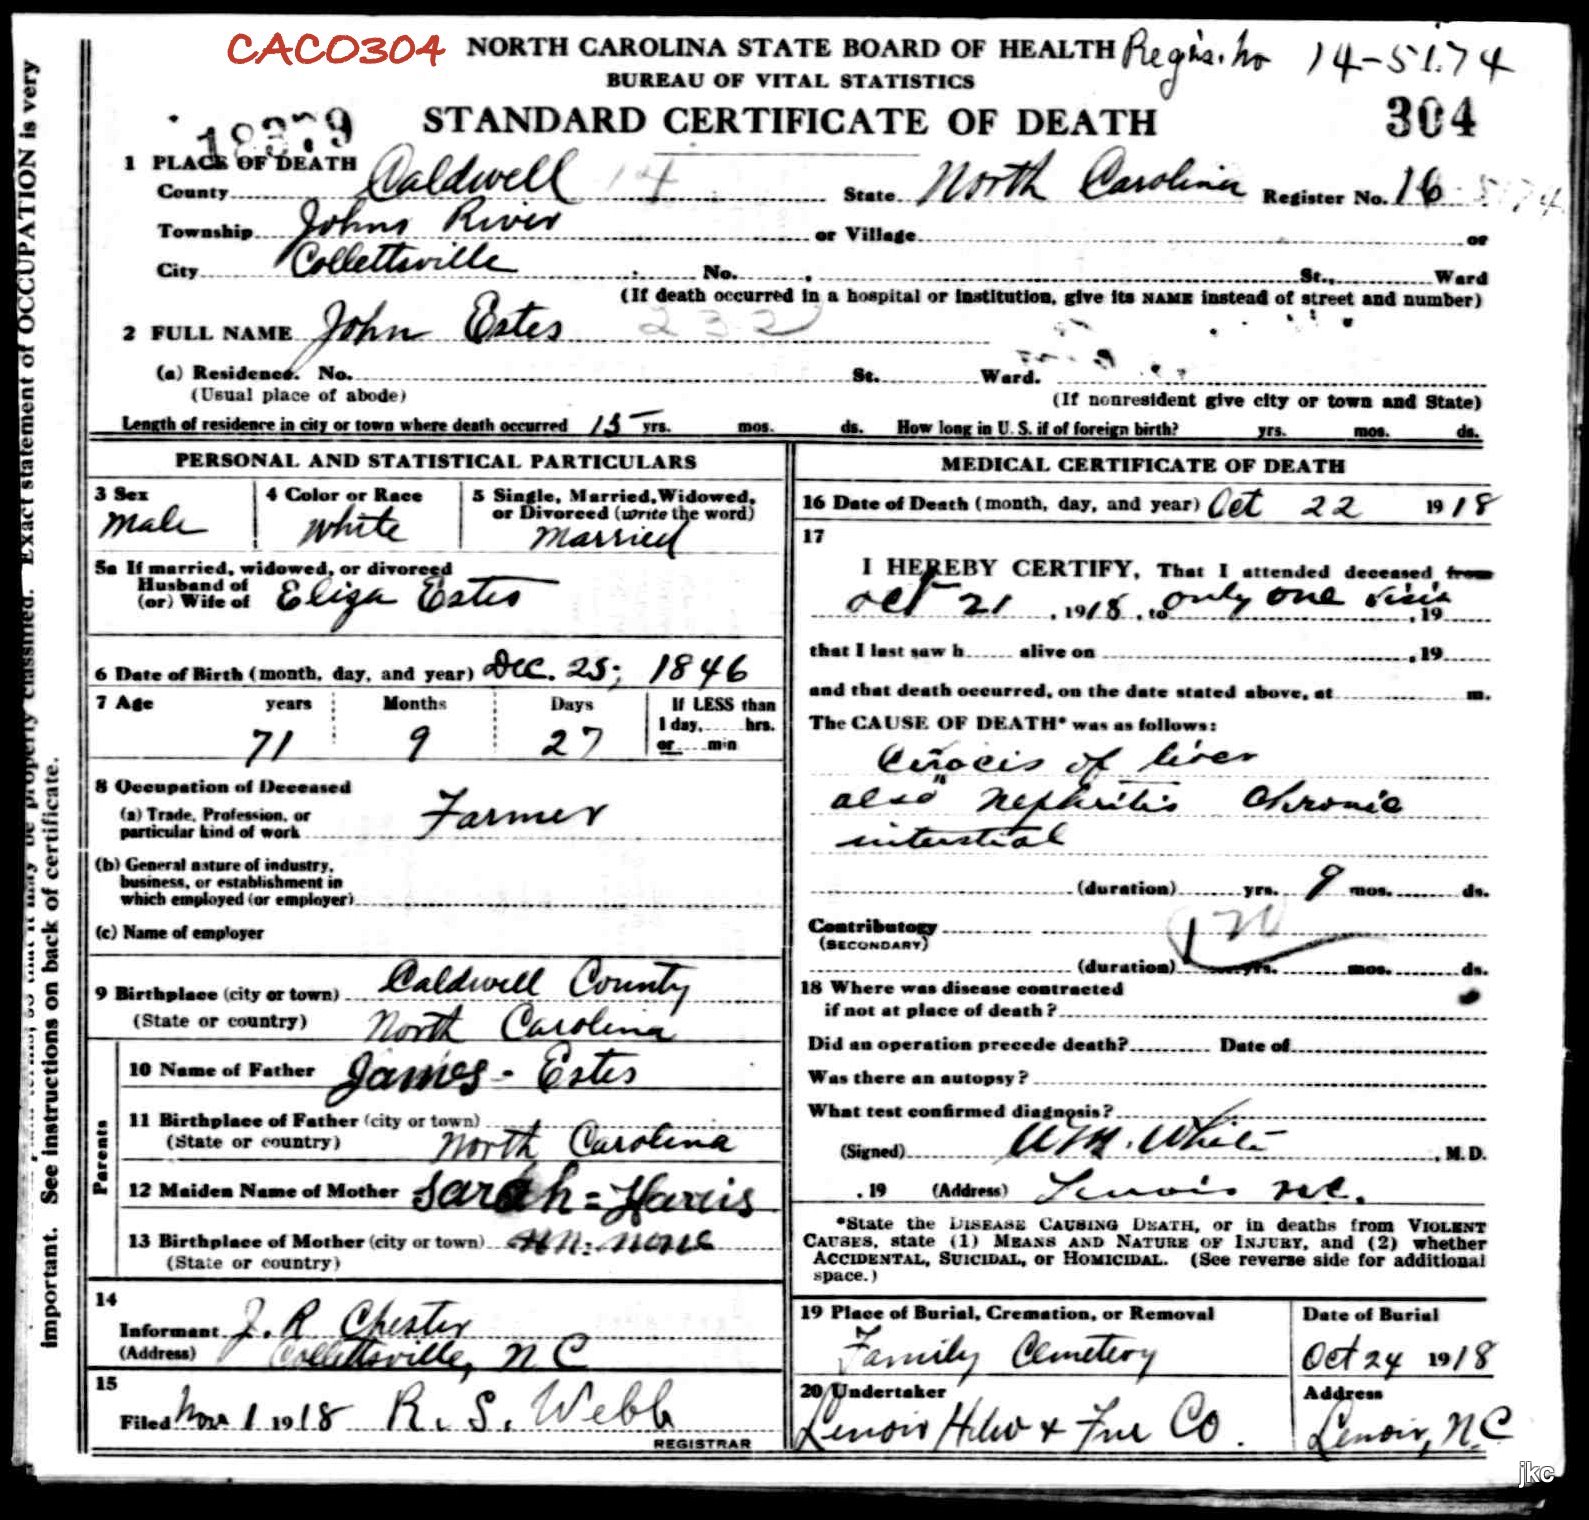 CACO304 NORTH CAROLINA STATE BOARD OF HEALTH Regis. No 14-5174
BUREAU OF VITAL STATISTICS
18379 STANDARD CERTIFICATE OF DEATH 304
1 PLACE OF DEATH
County Caldwell 14 State North Carolina Register No. 16 5174
Township Johns River or Village or
City Collettsville No. St., Ward
(If death occurred in a hospital or institution, give its NAME instead of street and number)
2 FULL NAME John Estes 232
(a) Residence. No. St. Ward.
(Usual place of abode) (If nonresident give city or town and State)
Length of residence in city or town where death occurred 15 yrs. mos. ds. How long in U. S. if of foreign birth? yrs. mos. ds.
PERSONAL AND STATISTICAL PARTICULARS
3 Sex 4 Color or Race 5 Single, Married, Widowed,
or Divorced (write the word)
Male White Married
5a If married, widowed, or divorced
Husband of
(or) Wife of Eliza Estes
6 Date of Birth (month, day, and year) Dec. 25, 1846
7 Age years Months Days If LESS than
1 day, hrs.
71 9 27 or min
8 Occupation of Deceased
(a) Trade, Profession, or
particular kind of work Farmer
(b) General nature of industry,
business, or establishment in
which employed (or employer)
(c) Name of employer
9 Birthplace (city or town) Caldwell County
(State or country) North Carolina
Parents
10 Name of Father James - Estes
11 Birthplace of Father (city or town)
(State or country) North Carolina
12 Maiden Name of Mother Sarah = Harris
13 Birthplace of Mother (city or town)
(State or country)
14
Informant J. R Chester
(Address) Collettsville, N C
15
Filed Nov 1 1918 R. S. Webb
REGISTRAR
MEDICAL CERTIFICATE OF DEATH
16 Date of Death (month, day, and year) Oct 22 1918
17
I HEREBY CERTIFY, That I attended deceased from
Oct 21, 1918, to only one visit, 19
that I last saw h alive on , 19
and that death occurred, on the date stated above, at m.
The CAUSE OF DEATH* was as follows:
Cirocis of liver
also Nephritis Chronic
interstial
(duration) yrs. 9 mos. ds.
Contributory
(SECONDARY)
(duration) yrs. mos. ds.
18 Where was disease contracted
if not at place of death?
Did an operation precede death? Date of
Was there an autopsy?
What test confirmed diagnosis?
(Signed) WM. White, M. D.
, 19 (Address) Lenoir N.C.
*State the DISEASE CAUSING DEATH, or in deaths from VIOLENT
CAUSES, state (1) MEANS AND NATURE OF INJURY, and (2) whether
ACCIDENTAL, SUICIDAL, or HOMICIDAL. (See reverse side for additional
space.)
19 Place of Burial, Cremation, or Removal Date of Burial
Family Cemetery Oct 24 1918
20 Undertaker Address
Lenoir Hdw & Fur Co. Lenoir, N.C
important. See instructions on back of certificate.
properly classified. Exact statement of OCCUPATION is very
jkc